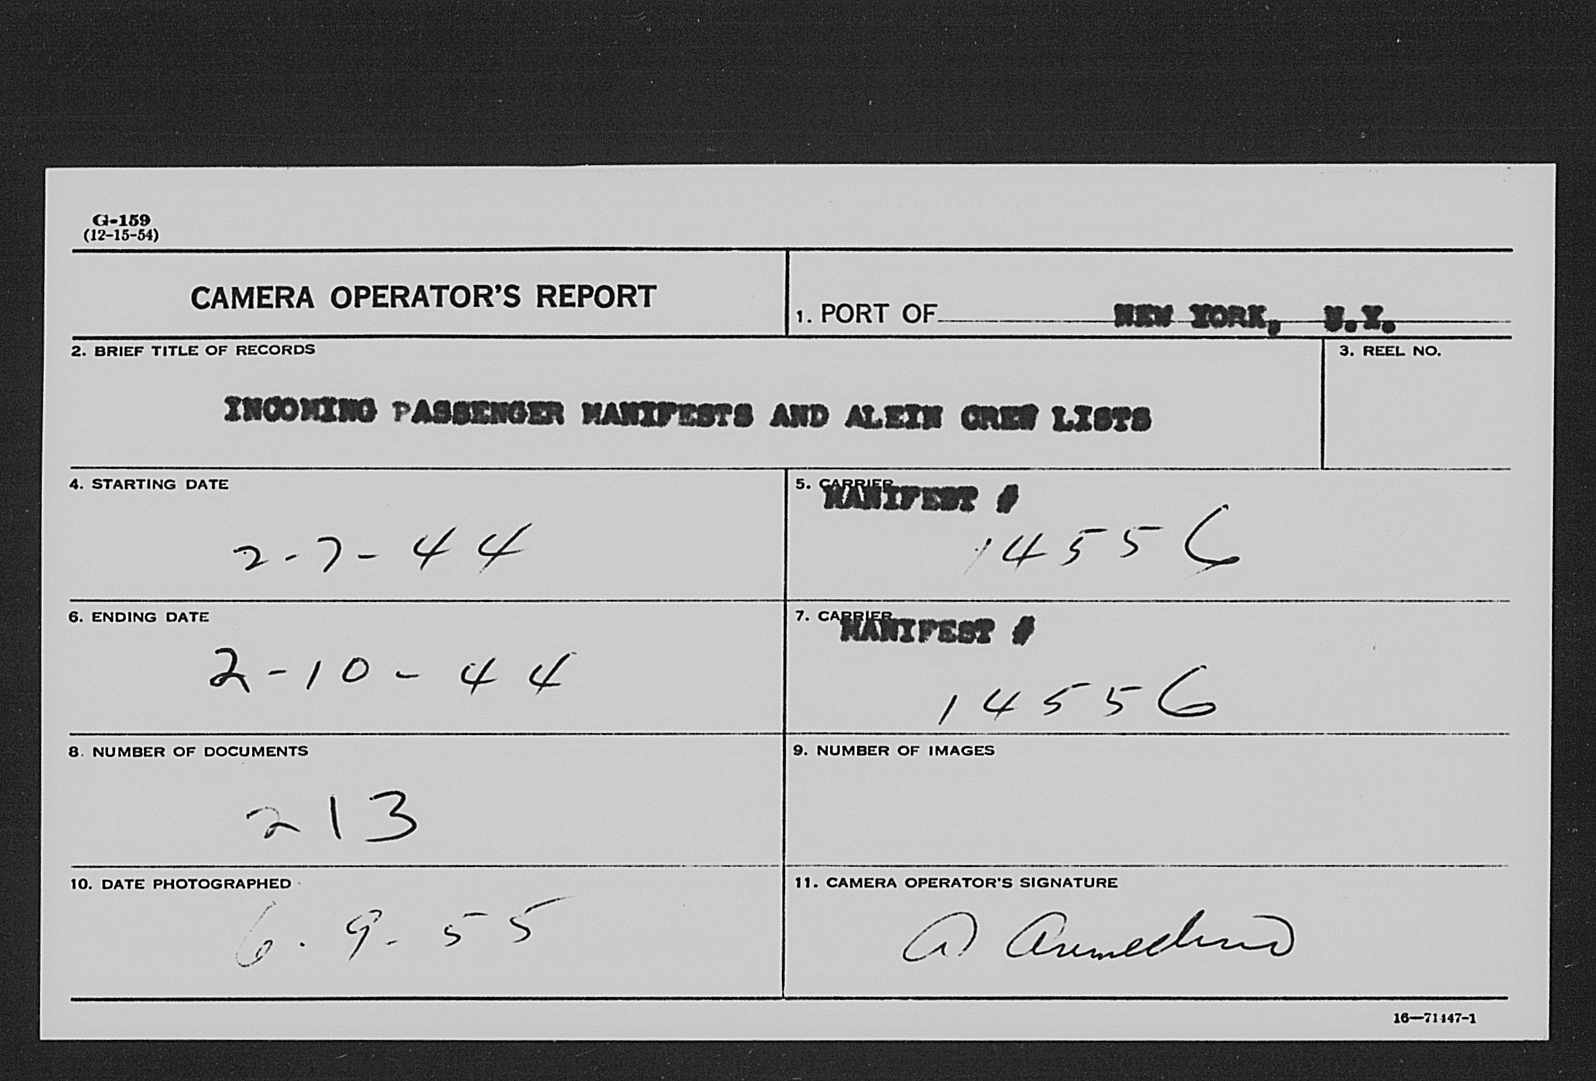 G-159
(12-15-54)
CAMERA OPERATOR'S REPORT
1. PORT OF NEW YORK, N.Y.
2. BRIEF TITLE OF RECORDS
3. REEL NO.
INCOMING PASSENGER MANIFESTS AND ALEIN CREW LISTS
4. STARTING DATE
2-7-44
5. CARRIER
MANIFEST #
14556
6. ENDING DATE
2-10-44
7. CARRIER
MANIFEST #
14556
8. NUMBER OF DOCUMENTS
213
9. NUMBER OF IMAGES
10. DATE PHOTOGRAPHED
6.9.55
11. CAMERA OPERATOR'S SIGNATURE
16—71447-1